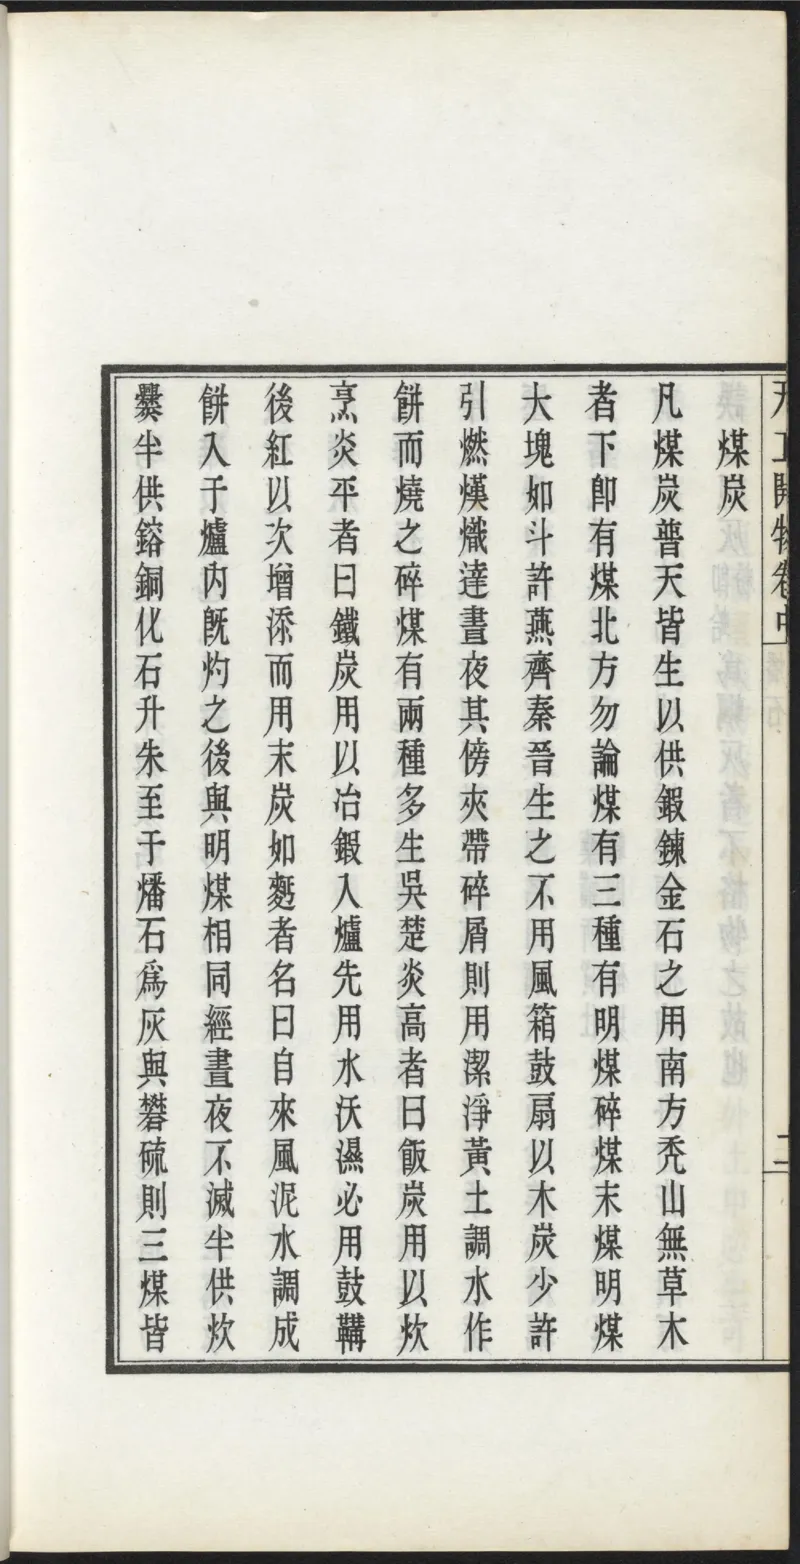 天工開物卷中
二
煤炭
凡煤炭普天皆生以供鍛鍊金石之用南方禿山無草木
者下卽有煤北方勿論煤有三種有明煤碎煤末煤明煤
大塊如斗許燕齊秦晉生之不用風箱鼓扇以木炭少許
引燃熯熾達晝夜其傍夾帶碎屑則用潔淨黃土調水作
餅而燒之碎煤有兩種多生吳楚炎高者曰飯炭用以炊
烹炎平者曰鐵炭用以冶鍛入爐先用水沃濕必用鼓鞲
後紅以次增添而用末炭如麪者名曰自來風泥水調成
餅入于爐內旣灼之後與明煤相同經晝夜不滅半供炊
爨半供鎔銅化石升朱至于燔石爲灰與礬硫則三煤皆